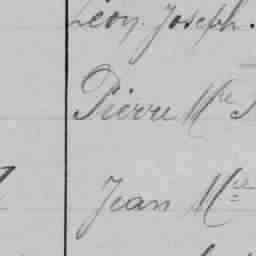 Léon Joseph.
Pierre Mie
Jean Mie